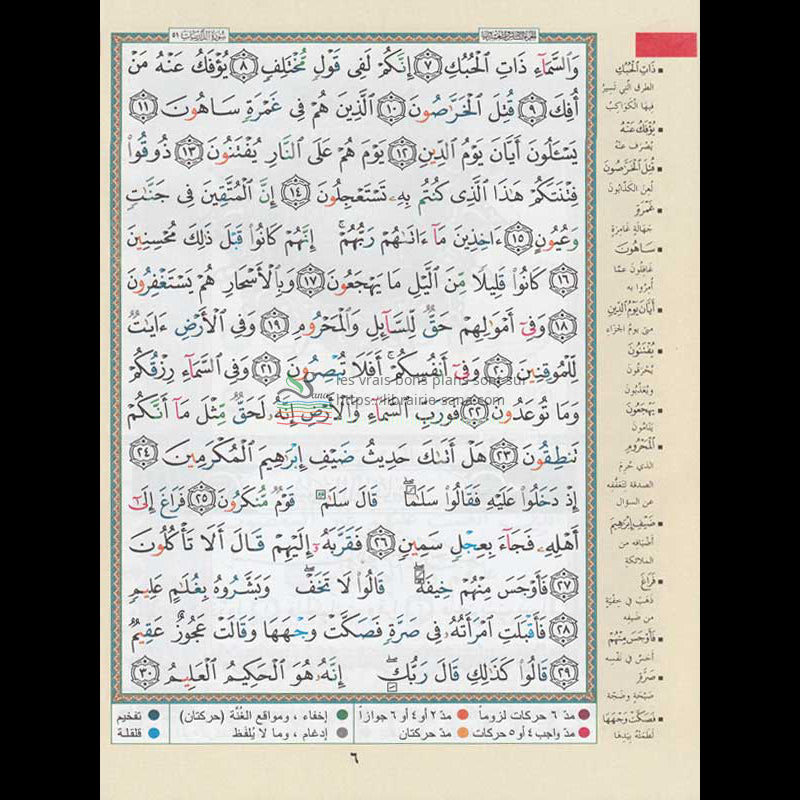 سورة الذاريات ٥١
وَٱلسَّمَآءِ ذَاتِ ٱلْحُبُكِ ٧ إِنَّكُمْ لَفِى قَوْلٍ مُّخْتَلِفٍ ٨ يُؤْفَكُ عَنْهُ مَنْ
أُفِكَ ٩ قُتِلَ ٱلْخَرَّٰصُونَ ١٠ ٱلَّذِينَ هُمْ فِى غَمْرَةٍ سَاهُونَ ١١
يَسْـَٔلُونَ أَيَّانَ يَوْمُ ٱلدِّينِ ١٢ يَوْمَ هُمْ عَلَى ٱلنَّارِ يُفْتَنُونَ ١٣ ذُوقُوا۟
فِتْنَتَكُمْ هَٰذَا ٱلَّذِى كُنتُم بِهِۦ تَسْتَعْجِلُونَ ١٤ إِنَّ ٱلْمُتَّقِينَ فِى جَنَّٰتٍ
وَعُيُونٍ ١٥ ءَاخِذِينَ مَآ ءَاتَىٰهُمْ رَبُّهُمْ ۚ إِنَّهُمْ كَانُوا۟ قَبْلَ ذَٰلِكَ مُحْسِنِينَ
١٦ كَانُوا۟ قَلِيلًا مِّنَ ٱلَّيْلِ مَا يَهْجَعُونَ ١٧ وَبِٱلْأَسْحَارِ هُمْ يَسْتَغْفِرُونَ
١٨ وَفِىٓ أَمْوَٰلِهِمْ حَقٌّ لِّلسَّآئِلِ وَٱلْمَحْرُومِ ١٩ وَفِى ٱلْأَرْضِ ءَايَٰتٌ
لِّلْمُوقِنِينَ ٢٠ وَفِىٓ أَنفُسِكُمْ ۚ أَفَلَا تُبْصِرُونَ ٢١ وَفِى ٱلسَّمَآءِ رِزْقُكُمْ
وَمَا تُوعَدُونَ ٢٢ فَوَرَبِّ ٱلسَّمَآءِ وَٱلْأَرْضِ إِنَّهُۥ لَحَقٌّ مِّثْلَ مَآ أَنَّكُمْ
تَنطِقُونَ ٢٣ هَلْ أَتَىٰكَ حَدِيثُ ضَيْفِ إِبْرَٰهِيمَ ٱلْمُكْرَمِينَ ٢٤
إِذْ دَخَلُوا۟ عَلَيْهِ فَقَالُوا۟ سَلَٰمًا ۖ قَالَ سَلَٰمٌ قَوْمٌ مُّنكَرُونَ ٢٥ فَرَاغَ إِلَىٰٓ
أَهْلِهِۦ فَجَآءَ بِعِجْلٍ سَمِينٍ ٢٦ فَقَرَّبَهُۥٓ إِلَيْهِمْ قَالَ أَلَا تَأْكُلُونَ
٢٧ فَأَوْجَسَ مِنْهُمْ خِيفَةً ۖ قَالُوا۟ لَا تَخَفْ ۖ وَبَشَّرُوهُ بِغُلَٰمٍ عَلِيمٍ
٢٨ فَأَقْبَلَتِ ٱمْرَأَتُهُۥ فِى صَرَّةٍ فَصَكَّتْ وَجْهَهَا وَقَالَتْ عَجُوزٌ عَقِيمٌ
٢٩ قَالُوا۟ كَذَٰلِكِ قَالَ رَبُّكِ ۖ إِنَّهُۥ هُوَ ٱلْحَكِيمُ ٱلْعَلِيمُ ٣٠
les vrais bons plans sont sur
https://librairie-sana.com
ذَاتِ ٱلْحُبُكِ
الطرق التي تسير
فيها الكواكب
يُؤْفَكُ عَنْهُ
يُصرف عنه
قُتِلَ ٱلْخَرَّٰصُونَ
لُعِن الكذّابون
غَمْرَةٍ
جهالة غامرة
سَاهُونَ
غافلون عمّا
أُمروا به
أَيَّانَ يَوْمُ ٱلدِّينِ
متى يوم الجزاء
يُفْتَنُونَ
يُحرقون
ويُعذّبون
يَهْجَعُونَ
ينامون
ٱلْمَحْرُومِ
الذي حُرِم
الصدقة لتعفّفه
عن السؤال
ضَيْفِ إِبْرَٰهِيمَ
أضيافه من
الملائكة
فَرَاغَ
ذهب في خفية
من ضيفه
فَأَوْجَسَ مِنْهُمْ
أحسّ في نفسه
صَرَّةٍ
صيحة وضجّة
فَصَكَّتْ وَجْهَهَا
لطمته بيدها
مدّ ٦ حركات لزوماً
مدّ ٢ أو ٤ أو ٦ جوازاً
إخفاء ، ومواقع الغُنَّة (حركتان)
تفخيم
مدّ واجب ٤ أو ٥ حركات
مدّ حركتان
إدغام ، وما لا يُلفَظ
قلقلة
٦